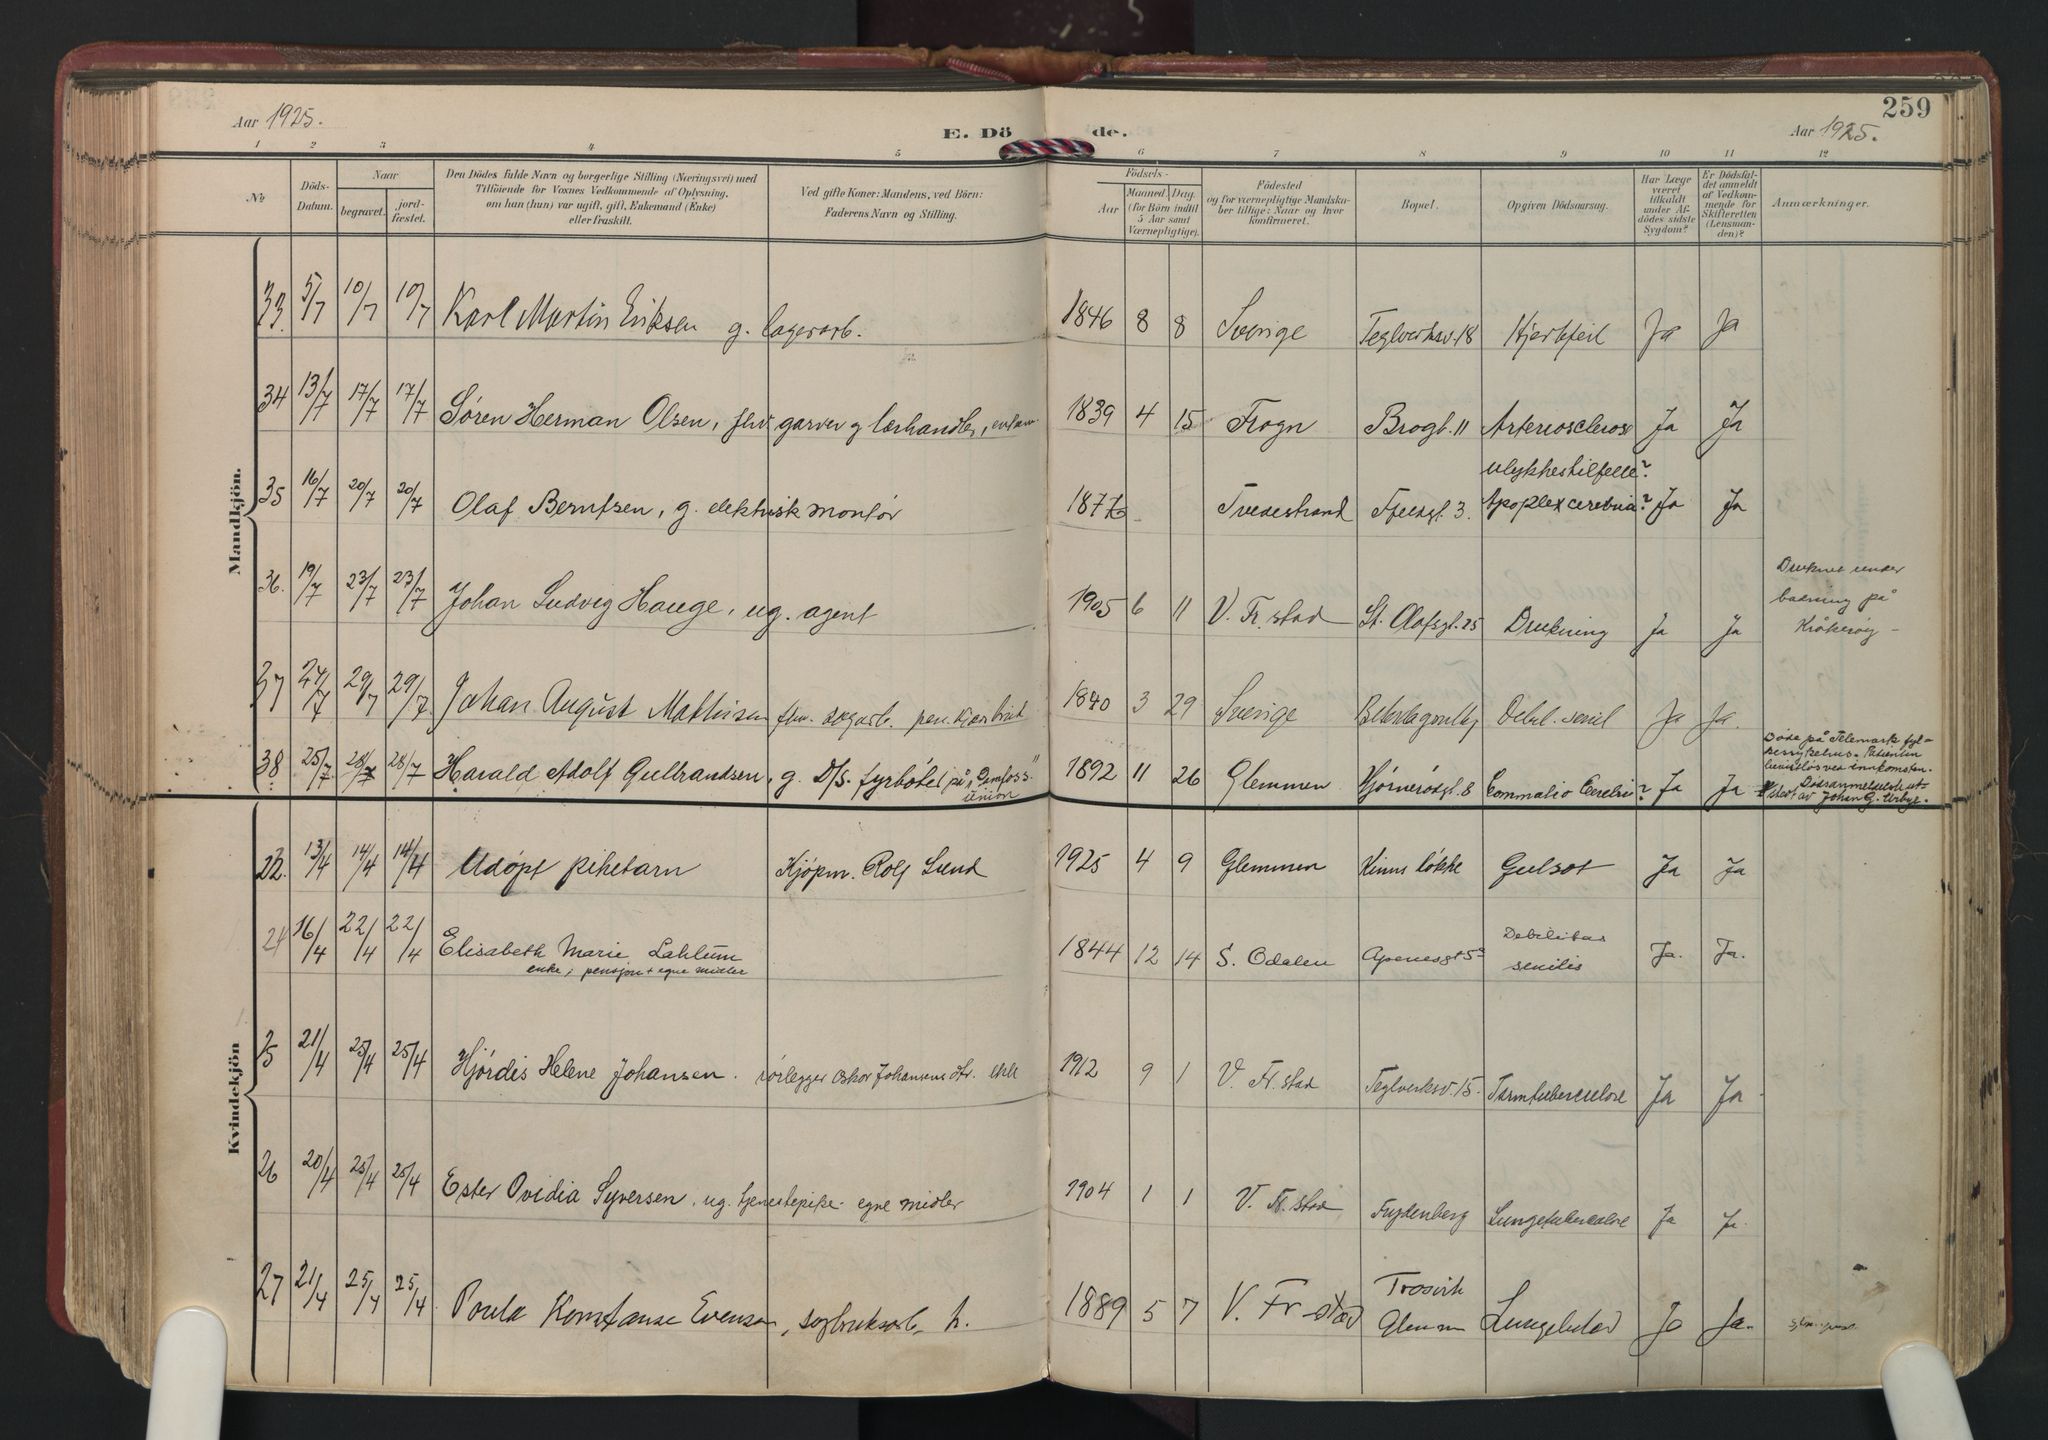 259
Aar 1925.
E. Dö de.
Aar 1925.
1 2 3 4 5 6 7 8 9 10 11 12
№
Döds-Datum.
Naar
begravet.
jordfæstet.
Den Dödes fulde Navn og borgerlige Stilling (Næringsvei) med
Tilföiende for Voxnes Vedkommende af Oplysning,
om han (hun) var ugift, gift, Enkemand (Enke)
eller fraskilt.
Ved gifte Koner: Mandens, ved Börn:
Faderens Navn og Stilling.
Födsels-
Aar
Maaned. Dag.
(for Börn indtil
5 Aar samt
Værnepligtige).
Födested
og for værnepligtige Mandskaber tillige: Naar og hvor
konfirmeret.
Bopæl.
Opgiven Dödsaarsag.
Har Læge
været
tilkaldt
under Afdödes sidste
Sygdom?
Er Dödsfaldet anmeldt
af Vedkommende for
Skifteretten
(Lensmanden)?
Anmærkninger.
Mandkjön.
33. 5/7 10/7 10/7 Karl Martin Eriksen g. lagerarb. 1846 8 8 Sverige Teglverksv. 18 Hjertefeil Ja Ja
34 13/7 17/7 17/7 Søren Herman Olsen, fhv garver og lærhandler, enkem. 1839 4 15 Frogn Brogt. 11 Arteriosclerose Ja Ja
ulykkestilfelle?
35 16/7 20/7 20/7 Olaf Berntsen, g. elektrisk montør 1877 Tvedestrand Fjeldgt. 3. Apoplex cerebria? Ja Ja
36. 19/7 23/7 23/7 Johan Ludvig Hauge, ug. agent 1905 6 11 V. Fr. stad St. Olafsgt. 25 Drukning Ja Ja
Druknet under
badning på
Kråkerøy
37 24/7 29/7 29/7 Johan August Mathisen fhv. sagarb. pen. 1840 3 29 Sverige Debil. senil Ja Ja.
38 25/7 28/7 28/7 Harald Adolf Gulbrandsen, g. D/S. fyrbøter på "Gemfoss" 1892 11 26 Glemmen Hjørnerødgt. 8 Commotio Cerebri? Ja Ja
union
Døde på Telemark fylkessykehus. Patienten
bevistløs ved innkomsten.
Dødsanmeldelse utstedt av Johan G.
Kvindekjön
23. 13/4 14/4 14/4 Udøpt pikebarn Kjøpm. Rolf Lund 1925 4 9 Glemmen Kinns løkke Gulsot Ja Ja
24 16/4 22/4 22/4 Elisabeth Marie Lahlum 1844 12 14 S. Odalen Apenesgt 53 Debilitas senilis Ja. Ja.
enke, pensjon + egne midler
25 21/4 25/4 25/4 Hjørdis Helene Johansen. rørlegger Oskar Johansens dtr. ekte 1912 9 1 V. Fr. stad Teglverksv. 15. Tarmtuberculose Ja Ja
26 20/4 25/4 25/4 Ester Ovidia Syversen, ug. tjenestepike. egne midler 1904 1 1 V. Fr. stad Frydenberg Lungetuberculose Ja Ja.
27 21/4 25/4 25/4 Paula Konstanse Evensen, sagbruksarb. h. 1889 5 7 V. Fr. stad Trosvik Glemmen Ja Ja.